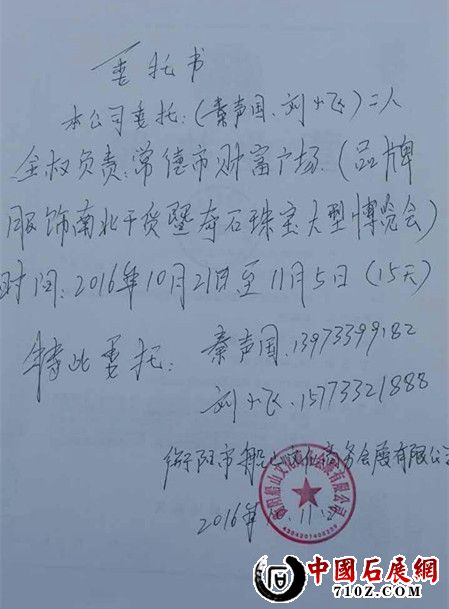 委托书
本公司委托:(秦声国、刘小飞)二人
全权负责:常德市财富广场.(品牌
服饰南北干货暨奇石珠宝大型博览会)
时间:2016年10月21日至11月5日(15天)
特此委托:
秦声国.13973399182
刘小飞.15773321888
衡阳市船山文化商务会展有限公司
2016年
中國石展網
710Z.COM